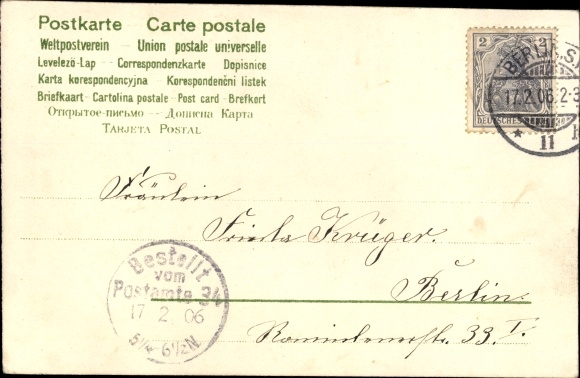 Postkarte – Carte postale
Weltpostverein – Union postale universelle
Levelező-Lap – Correspondenzkarte Dopisnice
Karta korespondencyjna – Korespondenční listek
Briefkaart – Cartolina postale – Post card – Brefkort
Открытое-письмо – Дописна Карта
TARJETA POSTAL
2 2
DEUTSCHES REICH
BERLIN S.
17.2.06.2-3
* 11
Fräulein
Frieda Krüger.
Berlin.
33 I.
Bestellt
vom
Postamte 34
17 2 06